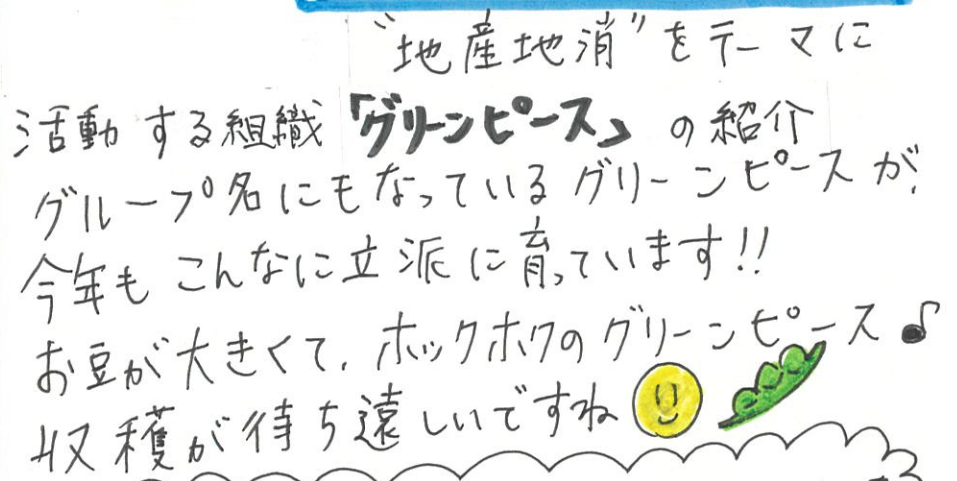 "地産地消"をテーマに
活動する組織「グリーンピース」の紹介
グループ名にもなっているグリーンピースが、
今年もこんなに立派に育っています!!
お豆が大きくて、ホックホクのグリーンピース♪
収穫が待ち遠しいですね